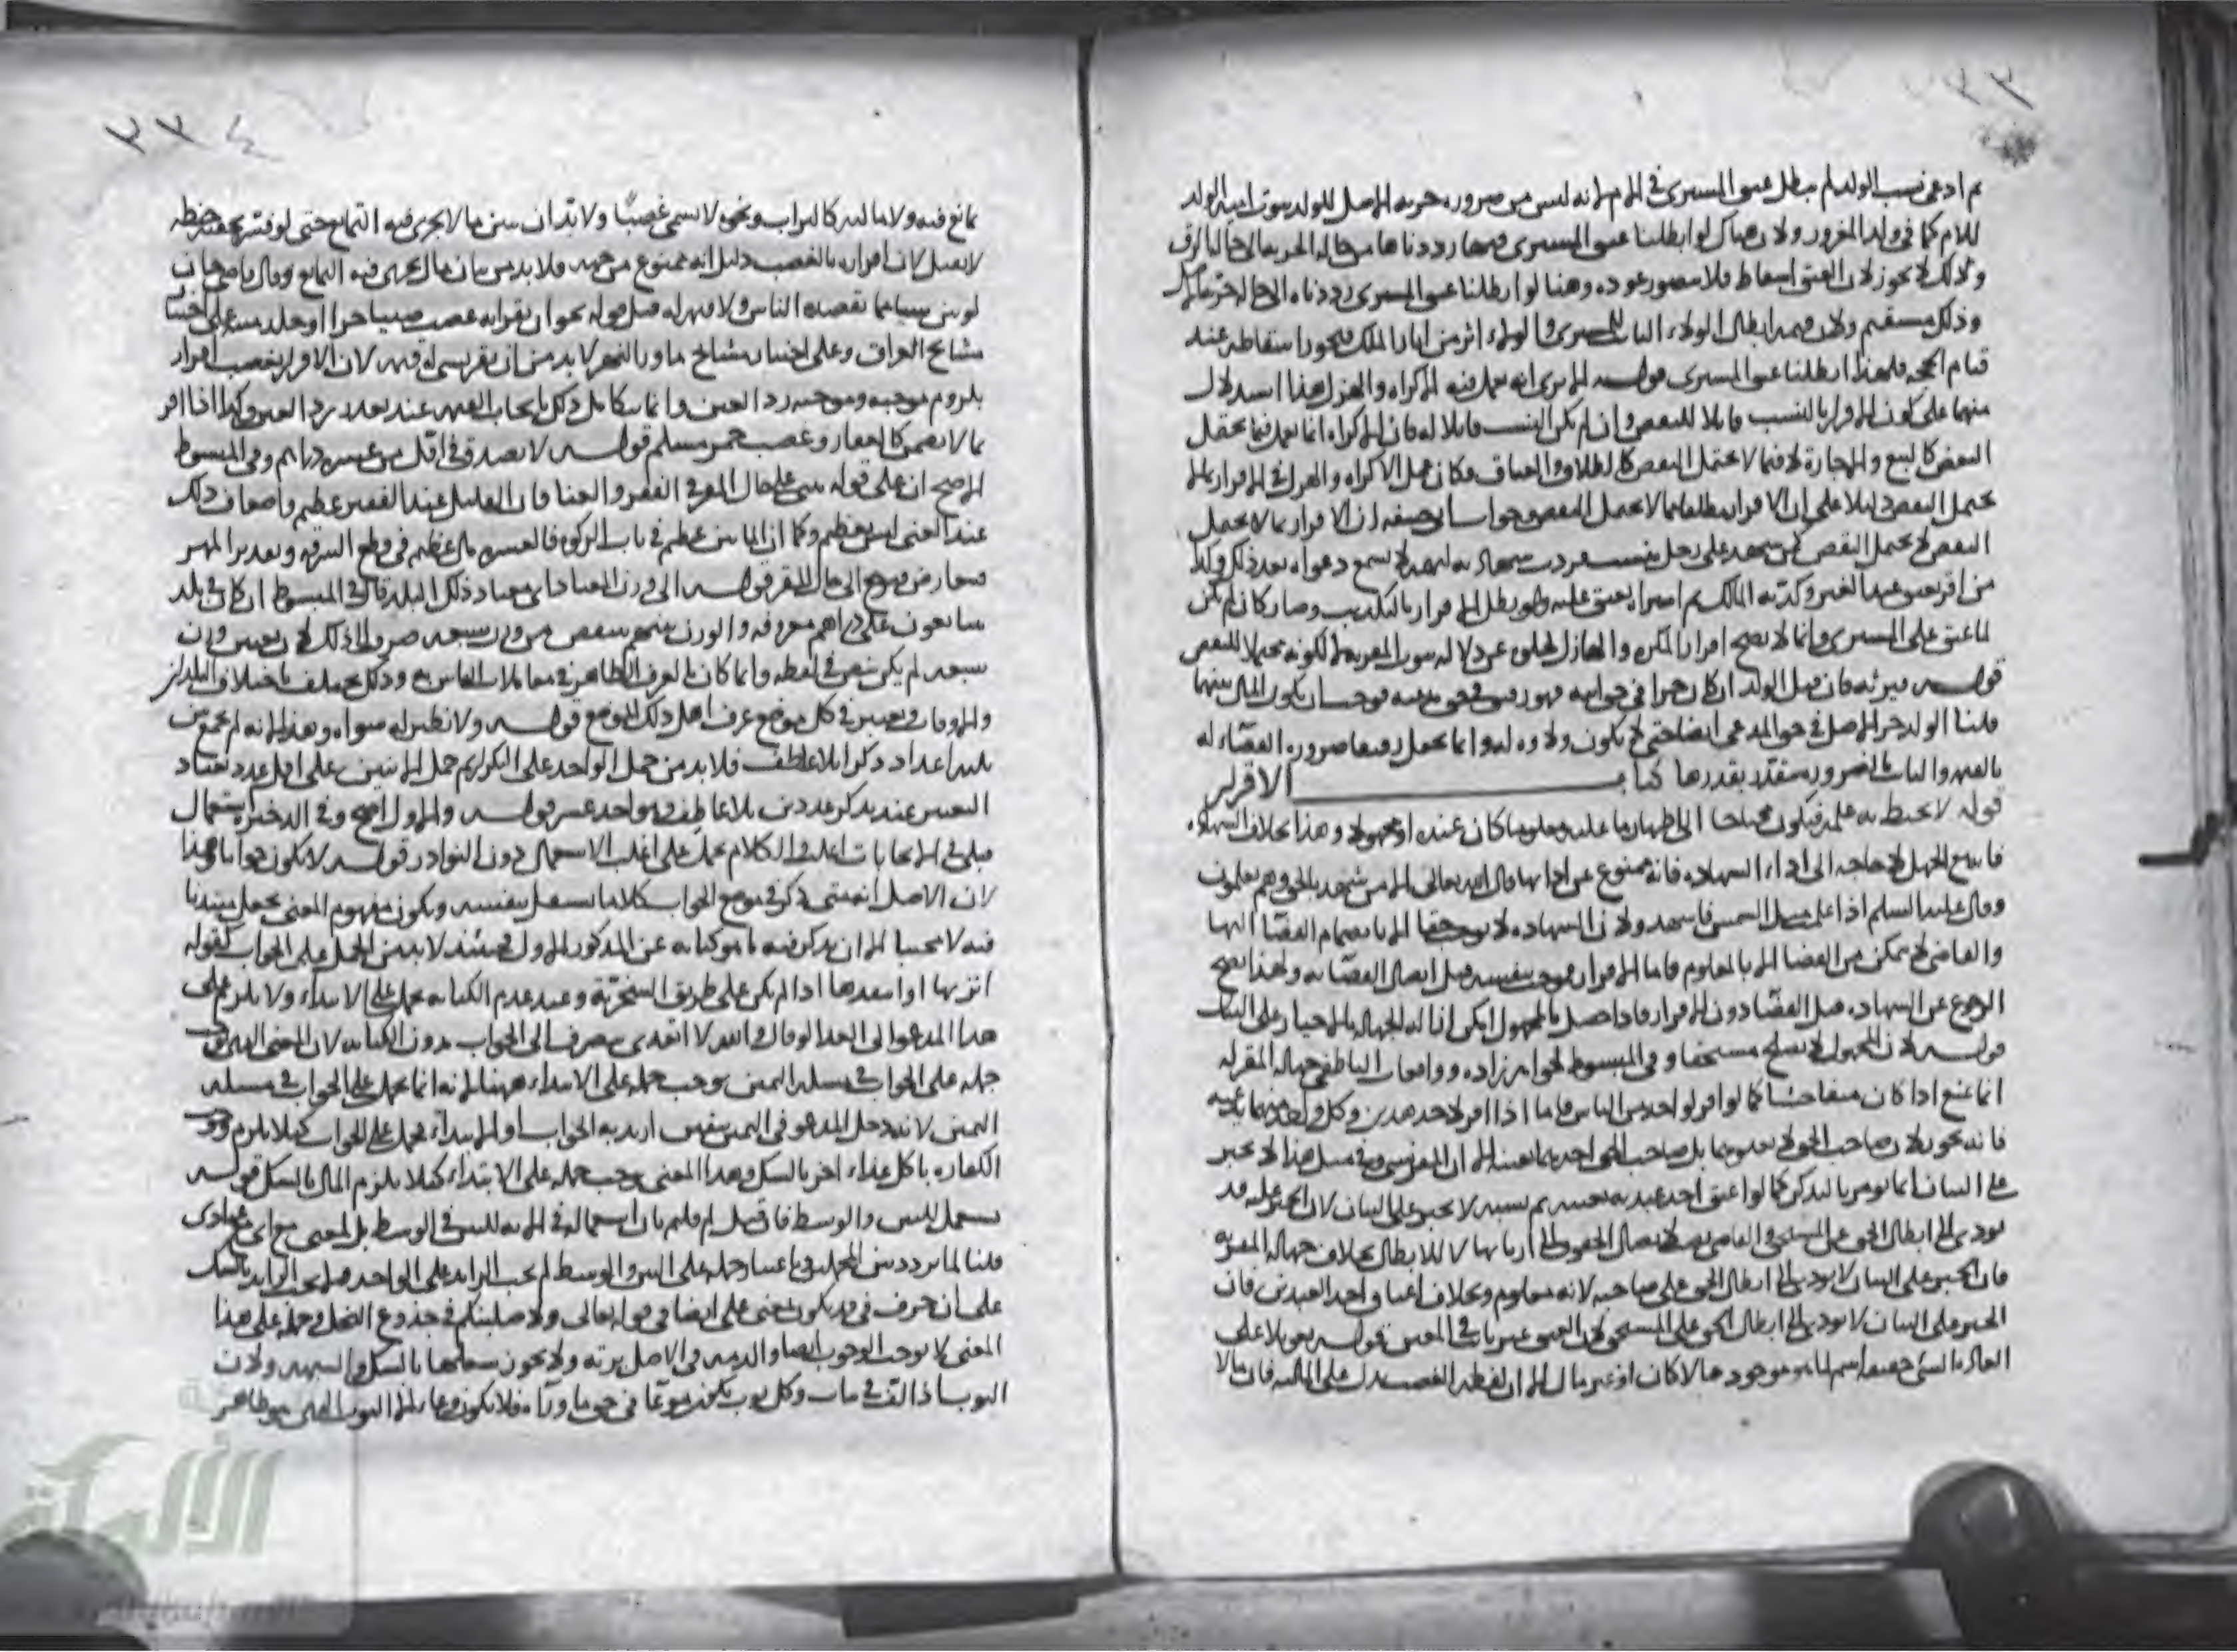 ثم ادعى نسب الولد لم يبطل عتق المشترى في الام لانه ليس من ضرورة حرية الاصل للولد ثبوت امية الولد
للام كما في ولد المغرور ولان هناك لو ابطلنا عتق المشترى فيها رددناها من حالة الحرية الى حالة الرق
وذلك لا يجوز لان العتق اسقاط فلا يتصور عوده وهنا لو ابطلنا عتق المشترى رددناه الى حالة حرية الاصل
وذلك مستقيم ولان فيه ابطال الولاء الثابت للمشترى والولاء اثر من اثار الملك فيجوز اسقاطه عند
قيام الحجة فلهذا ابطلنا عتق المشترى قوله الا يرى انه يعمل فيه الاكراه والهزل هذا استدلال
منهما على كون الاقرار بالنسب قابلا للنقض وان لم يكن النسب قابلا له فان الاكراه انما يعمل فيما يحتمل
النقض كالبيع والاجارة لا فيما لا يحتمل النقض كالطلاق والعتاق فكان عمل الاكراه والهزل في الاقرار بما لا
يحتمل النقض دليلا على ان الاقرار مطلقا
النقض لا يحتمل النقض كمن شهد على رجل بنسب فردت شهادته لا تسمع دعواه بعد ذلك وكذا
من اقر بعتق عبد الغير وكذبه المالك ثم اشتراه يعتق عليه ولو بطل الاقرار بالتكذيب وصار كان لم يكن
لما عتق على المشترى وانما لا يصح اقرار المكره والهازل
قوله ميراثه فان قيل الولد ان كان حرا في حق امه فهو رقيق في حق مدعيه فوجب ان يكون المال بينهما
قلنا الولد حر الاصل في حق المدعى ايضا حتى لا يكون ولاؤه له وانما يجعل رقيقا ضرورة القضاء له
بالقيمة والثابت بالضرورة يتقدر بقدرها كتاب الاقرار
قوله لا يحيط به علمه فيكون محتاجا الى اظهار ما عليه معلوما كان عنده او مجهولا وهذا بخلاف الشهادة
فان مع الجهل لا حاجة الى اداء الشهادة فانه ممنوع عن ادائها قال الله تعالى الا من شهد بالحق وهم يعلمون
وقال عليه السلم اذا علمت مثل الشمس فاشهد ولان الشهادة لا توجب حقا الا بانضمام القضا اليها
والقاضي لا يتمكن من القضا الا بالمعلوم فاما الاقرار موجب بنفسه قبل اتصال القضا به ولهذا يصح
الرجوع عن الشهادة قبل القضا دون الاقرار فاذا حصل بالمجهول امكن ازالة الجهالة بالاجبار على البيان
قوله لان المجهول لا يصلح مستحقا وفي المبسوط لخواهر زاده وواقعات الناطفي جهالة المقر له
انما تمنع اذا كان متفاحشا كما لو اقر لواحد من الناس فاما اذا اقر لاحد هذين وكل واحد منهما يدعيه
فانه يجوز
على البيان انما يؤمر بالتذكر كما لو اعتق احد عبديه بعينه ثم نسيه لا يجبر على البيان لان الجبر عليه قد
يؤدى الى ابطال الحق على المستحق والقاضي نصب لايصال الحقوق الى اربابها لا للابطال بخلاف جهالة المقر به
فان الجبر على البيان لا يؤدى الى ابطال الحق على صاحبه لانه معلوم وبخلاف اعتاق احد العبدين فان
الجبر على البيان لا يؤدى الى ابطال الحق على المستحق لان العتق غير نازل في المعين قوله تعويلا على
العادة الشئ حقيقة اسم لما هو موجود مالا كان او غير مال الا ان لفظة الغصب تدل على المالية فان مالا
٢٣٤
تمانع فيه ولا مالية كالتراب ونحوه لا يسمى غصبا ولا بد ان يبين مالا يجرى فيه التمانع حتى لو فسر بحبة حنطة
لا يقبل لان اقراره بالغصب دليل انه ممنوع من جهته فلا بد من بيان مال يجرى فيه التمانع وقال قاضي خان
لو بين شيئا مما يقصده الناس ولا قيمة له
مشايخ العراق وعلى اختيار مشايخ ما ورا النهر لا بد من ان يقر بشئ له قيمة لان الاقرار بغصب اقرار
يلزوم موجبه وموجبه رد العين وانما يتكامل ذلك بايجاب القيمة عند تعذر رد العين وكذا اذا اقر
بما لا يضمن كالعقار وغصب خمر مسلم قوله لا يصدق في اقل من عشرة دراهم وفي المبسوط
الاصح ان على قوله يبنى على حال المقر في الفقر والغنا فان القليل عند الفقير عظيم واضعاف ذلك
عند الغني ليس بعظيم وكما ان المائتين عظيم في باب الزكوة فالعشرة مال عظيم في قطع السرقة وتقدير المهر
فتعارض فيرجع الى حال المقر قوله الى وزن المعتاد اى معتاد ذلك البلد قال في المبسوط ان كان في بلد
يتبايعون على دراهم معروفة والوزن بينهم ينقص من وزن سبعة صرف الى ذلك لان تعيين وزن
سبعة لم يكن بنص في لفظه وانما كان بالعرف الظاهر في معاملات الناس به وذلك يختلف باختلاف البلدان
والاوقات ويعتبر في كل موضع عرف اهل ذلك الموضع قوله ولا نظير له سواه وهذا لانه لم يجمع بين
ثلثة اعداد ذكرا بلا عاطف فلا بد من حمل الواحد على التكرار ثم حمل الاثنين على اقل عدد يعتاد
التعبير عنه بذكر عددين بلا عاطف وهو احد عشر قوله والاول اصح وفي الذخيرة استعمال
قبلي في الامانات اغلب والكلام يحمل على اغلب الاستعمال دون النوادر قوله لا يكون جوابا وهذا
لان الاصل انه متى ذكر في موضع الجواب كلاما يستقل بنفسه ويكون مفهوم المعنى يجعل مبتديا
فيه لا مجيبا الا ان يذكر فيه ما هو كناية عن المذكور الاول فحينئذ لا بد من الحمل على الجواب كقوله
اتزنها او انتقدها اذا لم يكن على طريق السخرية وعند عدم الكناية يحمل على الابتداء ولا يلزم على
هذا المدعو الى الغدا لو قال والله لا اتغدى يصرف الى الجواب بدون الكناية لان المعنى الذي
حمله على الجواب في مسئلة اليمين يوجب حمله على الابتداء ههنا لانه انما يحمل على الجواب في مسئلة
اليمين لانه دخل المدعو في اليمين بيقين اريد به الجواب او الابتداء فحمل على الجواب كيلا يلزم
الكفارة باكل غداء اخر بالشك وهذا المعنى يوجب حمله على الابتداء كيلا يلزم المال بالشك قوله
يستعمل للبين والوسط فان قيل لم قلتم بان استعماله في الاية للبين والوسط بل لمعنى مع
قلنا لما تردد بين المحملين فباعتبار حمله على البين والوسط لم يجب الزائد على الواحد فلا يجب الزايد بالشك
على ان حرف في قد يكون بمعنى على ايضا في قوله تعالى ولاصلبنكم في جذوع النخل وحمله على هذا
المعنى لا يوجب الوجوب ايضا والذمة في الاصل برئة ولا يجوز شغلها بالشك والشبهة ولان
الثوب اذا لف في ثياب وكل ثوب يكون موعا في حق ما وراه فلا يكون وعا الا الثوب الذي هو ظاهر